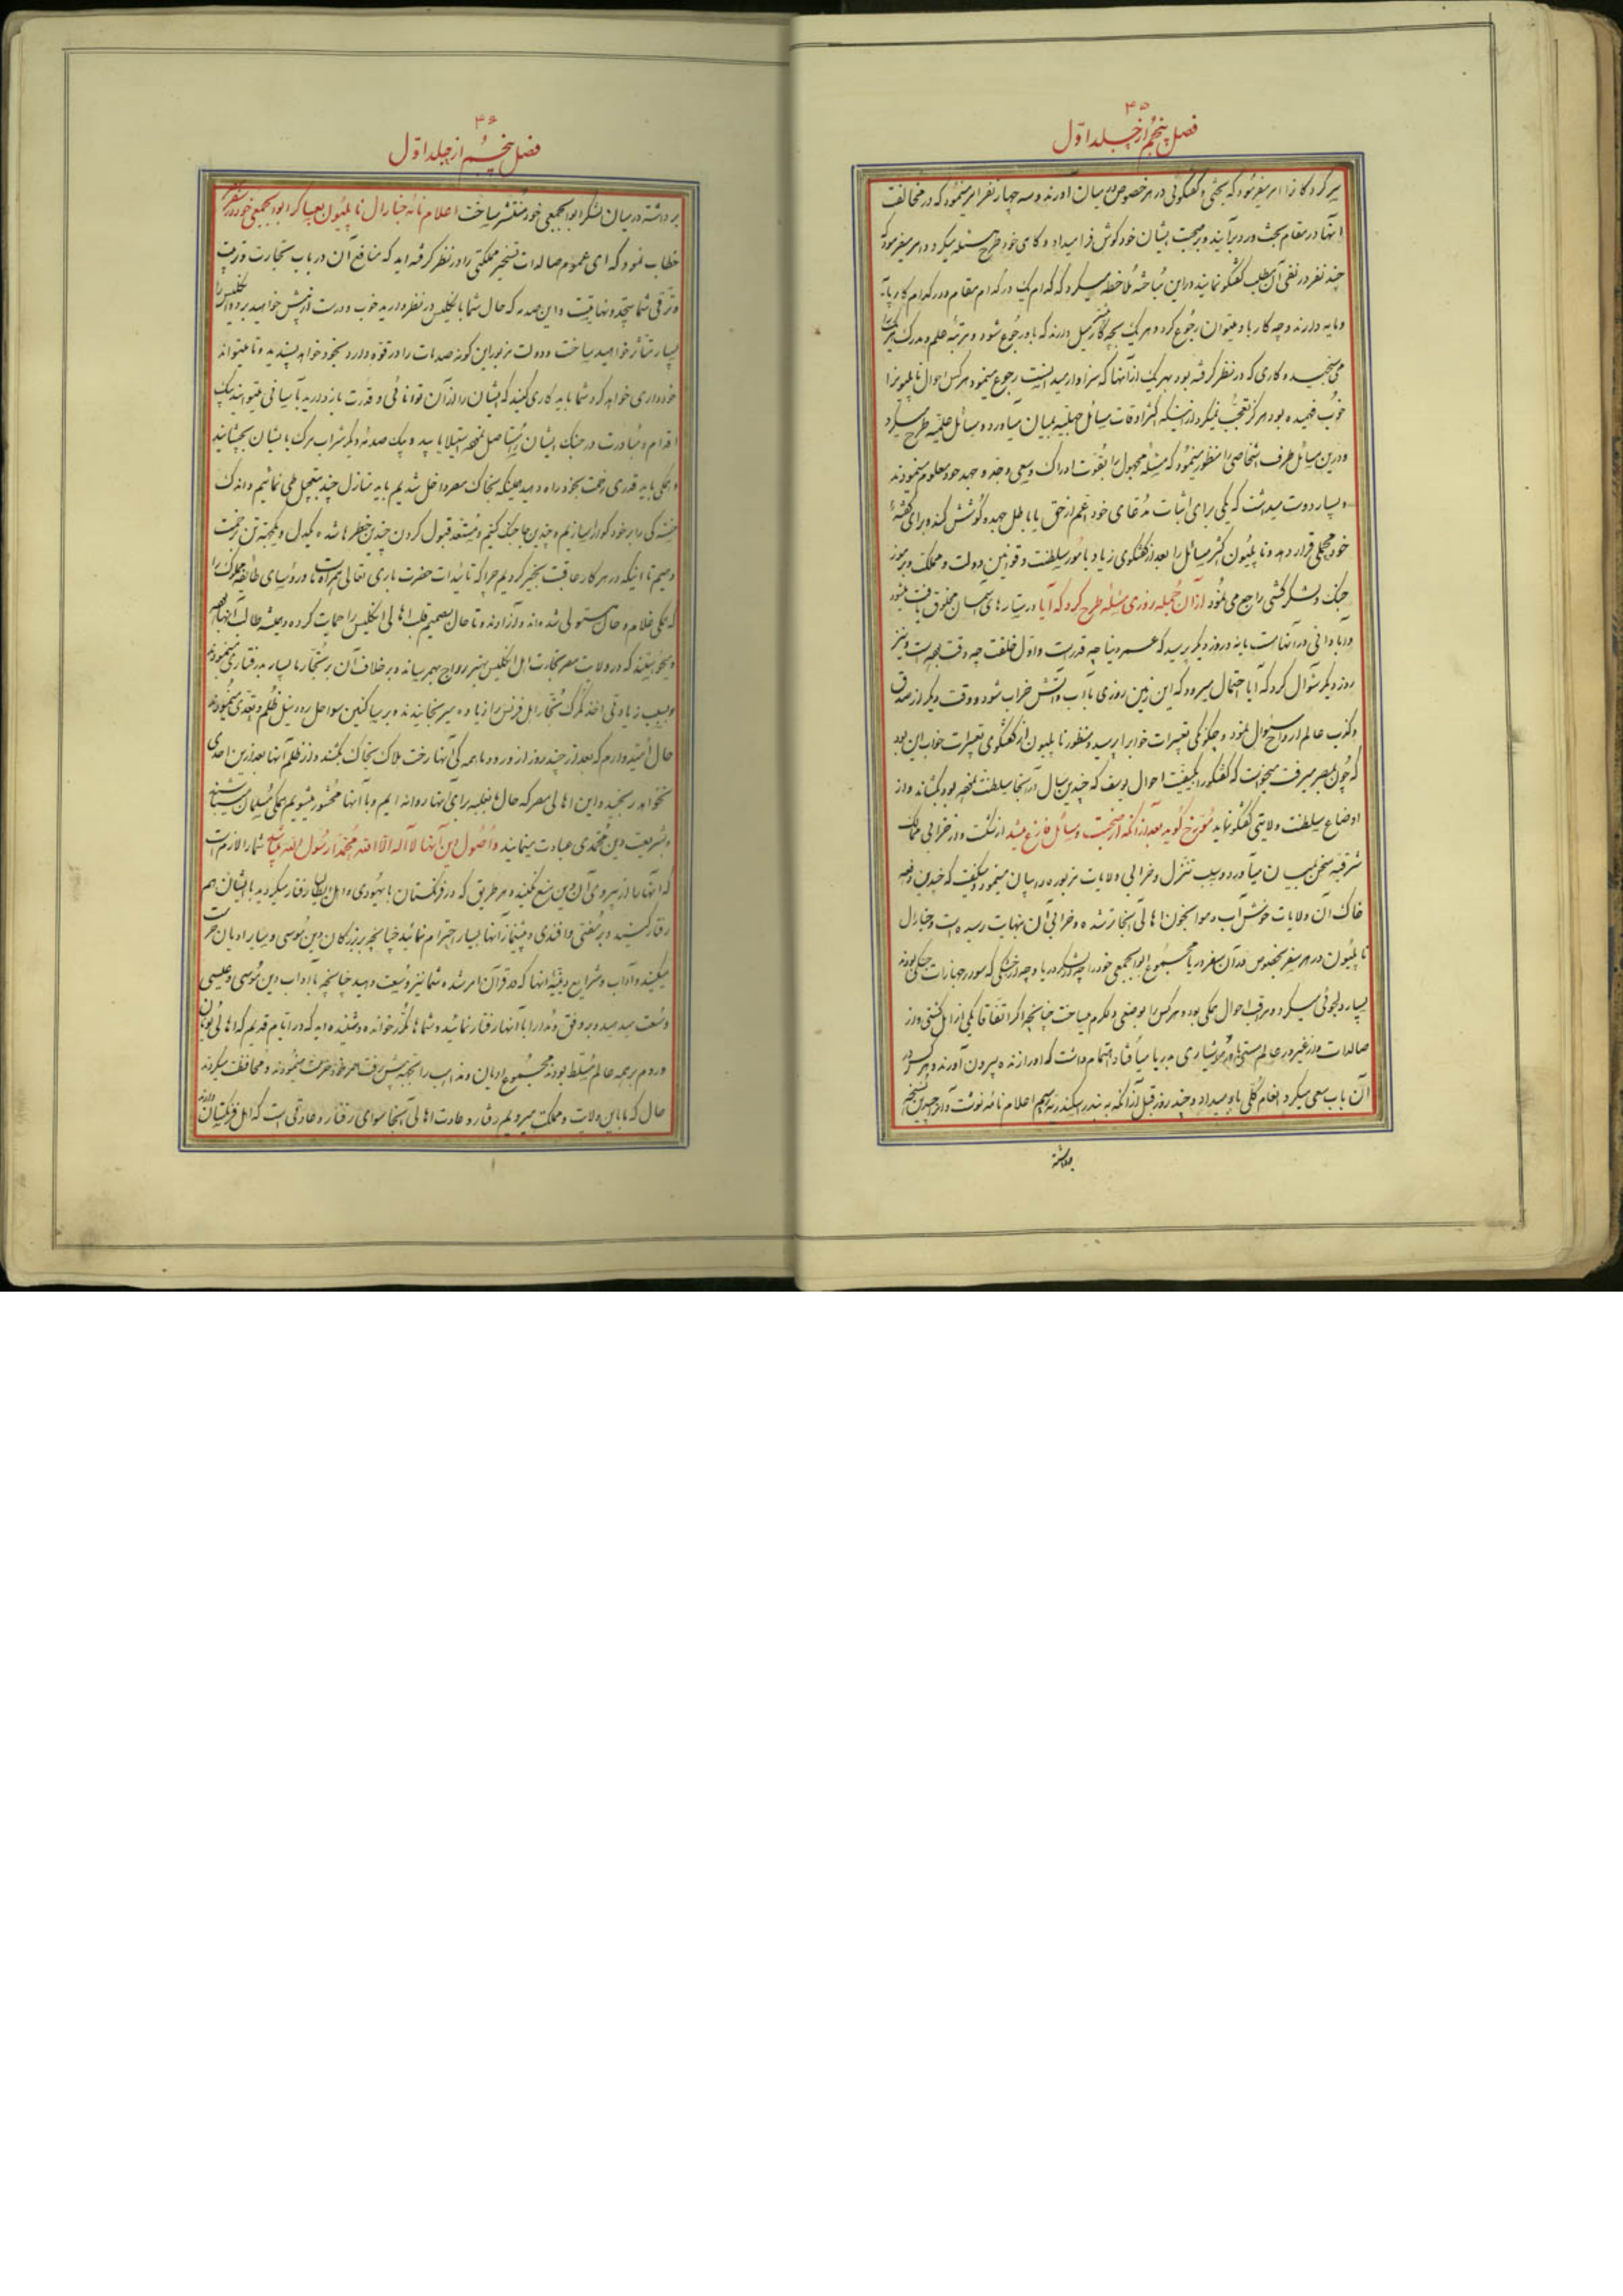 ۴۵
فصل پنجم از جلد اول
سیر کرد کاه را امر میفرمود که بحثی و گفتگوئی در هر خصوص در میان آورند و سه چهار نفر امر مینمود که در مخالفت
آنها در مقام بحث و رد برآیند و بر صحبت ایشان خود گوش فرا میداد و گاهی خود طرح مسئله میکرد و امر میفرمود که
چند نفر در نفی آن مطلب گفتگو نمایند و در این مباحثه ملاحظه میکرد که کدام یک در کدام مقام و در کدام کار پایه
و مایه دارند و چه کار باو میتوان رجوع کرد و هر یک بچه کار میل دارند که باو رجوع شود و مرتبه علم و مدرک هر یک را
می سنجید و کاری که در نظر گرفته بود بهر یک از آنها که سزاوار میدانست رجوع مینمود هر کس احوال ناپلیون را
خوب فهمیده بود هرگز تعجب نمیکرد از اینکه اکثر اوقات مسائل جهلیه بمیان میآورد و مسائل علمیه طرح میکرد
و در این مسائل طرف اشخاصی را منظور مینمود که مسئله مجهول را بقوت ادراک و سعی و جد و جهد خود معلوم مینمودند
و بسیار دوست میداشت که یکی برای اثبات مدعای خود اعم از حق یا باطل جهد و کوشش کند و برای گفته
خود محملی قرار دهد و ناپلیون اکثر مسائل را بعد از گفتگوی زیاد بامور سلطنت و قوانین دولت و مملکت و برموز
جنگ و لشکرکشی راجع می نمود از آن جمله روزی مسئله طرح کرد که آیا در ستاره های آسمان مخلوق یافت میشود
و آبادانی در آنهاست یا نه و روز دیگر پرسید که عمر دنیا چه قدر است و اول خلقت چه وقت بوده است و نیز
روز دیگر سؤال کرد که آیا احتمال میرود که این زمین روزی با آب و آتش خراب شود و وقت دیگر از صدق
و کذب عالم ارواح سؤال نمود و چگونگی تعبیرات خواب را پرسید و منظور ناپلیون از گفتگوی تعبیرات خواب این بود
که چون بمصر میرفت میخواست که گفتگو را بکیفیت احوال یوسف که چندین سال در آنجا سلطنت نمود بود بکشاند و از
اوضاع سلطنت ولایتی گفتگو نماید مورخ گوید بعد از آنکه از صحبت و مسائل فارغ میشد از نکبت و از خرابی ممالک
شرقیه سخن بمیان میآورد و سبب تنزل و خرابی ولایات مزبوره را بیان مینمود و میگفت که چندین دفعه
خاک آن ولایات خوش آب و هوا بخون اهالی آنجا تر شده و خرابی آن بنهایت رسیده است و جنارال
ناپلیون در هر سفر بخصوص در آن سفر دریا مجموع ابوابجمعی خود را چه در دریا و چه در خشکی که سوار جهازات جنگی بودند
بسیار دلجوئی میکرد و مراقب احوال همگی بود و هر کس را بوضعی دلگرم میساخت چنانچه اگر اتفاقا یکی از اهل کشتی و از
صالدات و از غیره در عالم مستی یا هوشیاری به دریا میافتاد اهتمام داشت که او را زنده بیرون آورند و هر کس در
آن باب سعی میکرد انعام کلی باو میداد و چند روز قبل از آنکه به بندر اسکندریه برسیم اعلام نامه نوشت و از آن چندین نسخه
برداشته
۴۶
فصل پنجم از جلد اول
برداشته در میان لشکر ابوابجمعی خود منتشر ساخت اعلام نامه جنارال ناپلیون بعساکر ابوابجمعی خود در سفر مصر
خطاب نمود که ای عموم صالدات تسخیر مملکتی را در نظر گرفته اید که منافع آن در باب تجارت و تربیت
و ترقی شما بیحد و نهایت است و این صدمه که حال شما با انگلیس در نظر دارید خوب و درست از پیش خواهید برد و انگلیس را
بسیار متأثر خواهید ساخت و دولت مزبور این گونه صدمات را در قوه دارد بخود خواهد پسندید و تا میتواند
خودداری خواهد کرد و شما باید کاری کنید که ایشان را از آن توانائی و قدرت باز دارید بآسانی میتوانید بیک
اقدام و مبادرت در جنگ ایشان را مستأصل نموده استیلا یابید و بیک صدمه دیگر شراب مرگ بایشان بچشانید
و همگی باید قدری زحمت بخود راه دهید حینیکه بخاک مصر داخل شدیم باید منازل چند بتعجیل طی نمائیم و اندک
خستگی را بر خود گوارا سازیم و چندین جا جنگ کنیم و مستعد قبول کردن چندین خطرها شده یکدل و یکجهت تن بزحمت
دهیم تا اینکه در هر کار عاقبت بخیر گردیم چرا که تأییدات حضرت باری تعالی همراه ماست و رؤسای طائفه مملوک را
که همگی غلام و حال مستولی شده اند و آزادند و تا حال بصمیم قلب اهالی انگلیس را حمایت کرده و همیشه طالب آنها بوده
و میخواستند که در ولایت مصر تجارت اهل انگلیس بهتر رواج بهم رساند و بر خلاف آن بر تجار ما بسیار بدرفتاری مینمودند
و بسبب زیادتی اخذ گمرک تجار اهل فرنس را زیاده میرنجانیدند و بر ساکنین سواحل رود نیل ظلم و تعدی مینمودند
حال امیدوارم که بعد از چند روز از ورود ما همگی آنها رخت هلاک بخاک بکشند و از ظلم آنها بعد از این احدی
نخواهد رنجید و این اهالی مصر که حال ما بغلبه برای آنها روانه ایم و با آنها محشور میشویم همگی مسلمان میباشند
و بشریعت دین محمدی عبادت مینمایند و اصول دین آنها لا اله الا الله محمد رسول الله میباشد شما را لازم است
که آنها را از پیروی آن دین منع نکنید و هر طریق که در فرنگستان با یهودی و اهل ایطالیا رفتار میکردید با ایشان هم
رفتار کنید و بر مفتی و افندی و پیشنماز آنها بسیار احترام نمائید چنانچه بر بزرگان دین موسی و سایر ادیان حرمت
میکنید و آداب و شرایع دینیه آنها که در قرآن امر شده شما نیز وسعت دهید چنانچه بآداب دین موسی و عیسی
وسعت میدهید و بر وفق و مدارا با آنها رفتار نمائید و شماها مکرر خوانده و شنیده اید که در ایام قدیم که اهالی یونان
و روم بر همه عالم مسلط بودند مجموع ادیان و مذاهب را بجهة پیش رفت امر خود حرمت مینمودند و محافظت میکردند
حال که ما باین ولایت و مملکت میرویم رفتار و عادت اهالی آنجا سوای رفتار و عادتی است که اهل فرنگستان دارند